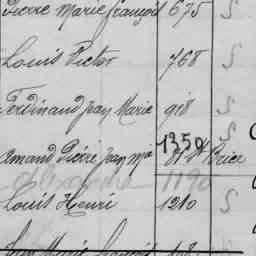 Pierre Marie François 675 S
Louis Victor 768 S
Ferdinand Jean Marie 918 S
1350 S
Amand Pierre Jean Mie St Brice
1190
Louis Henri 1210 S